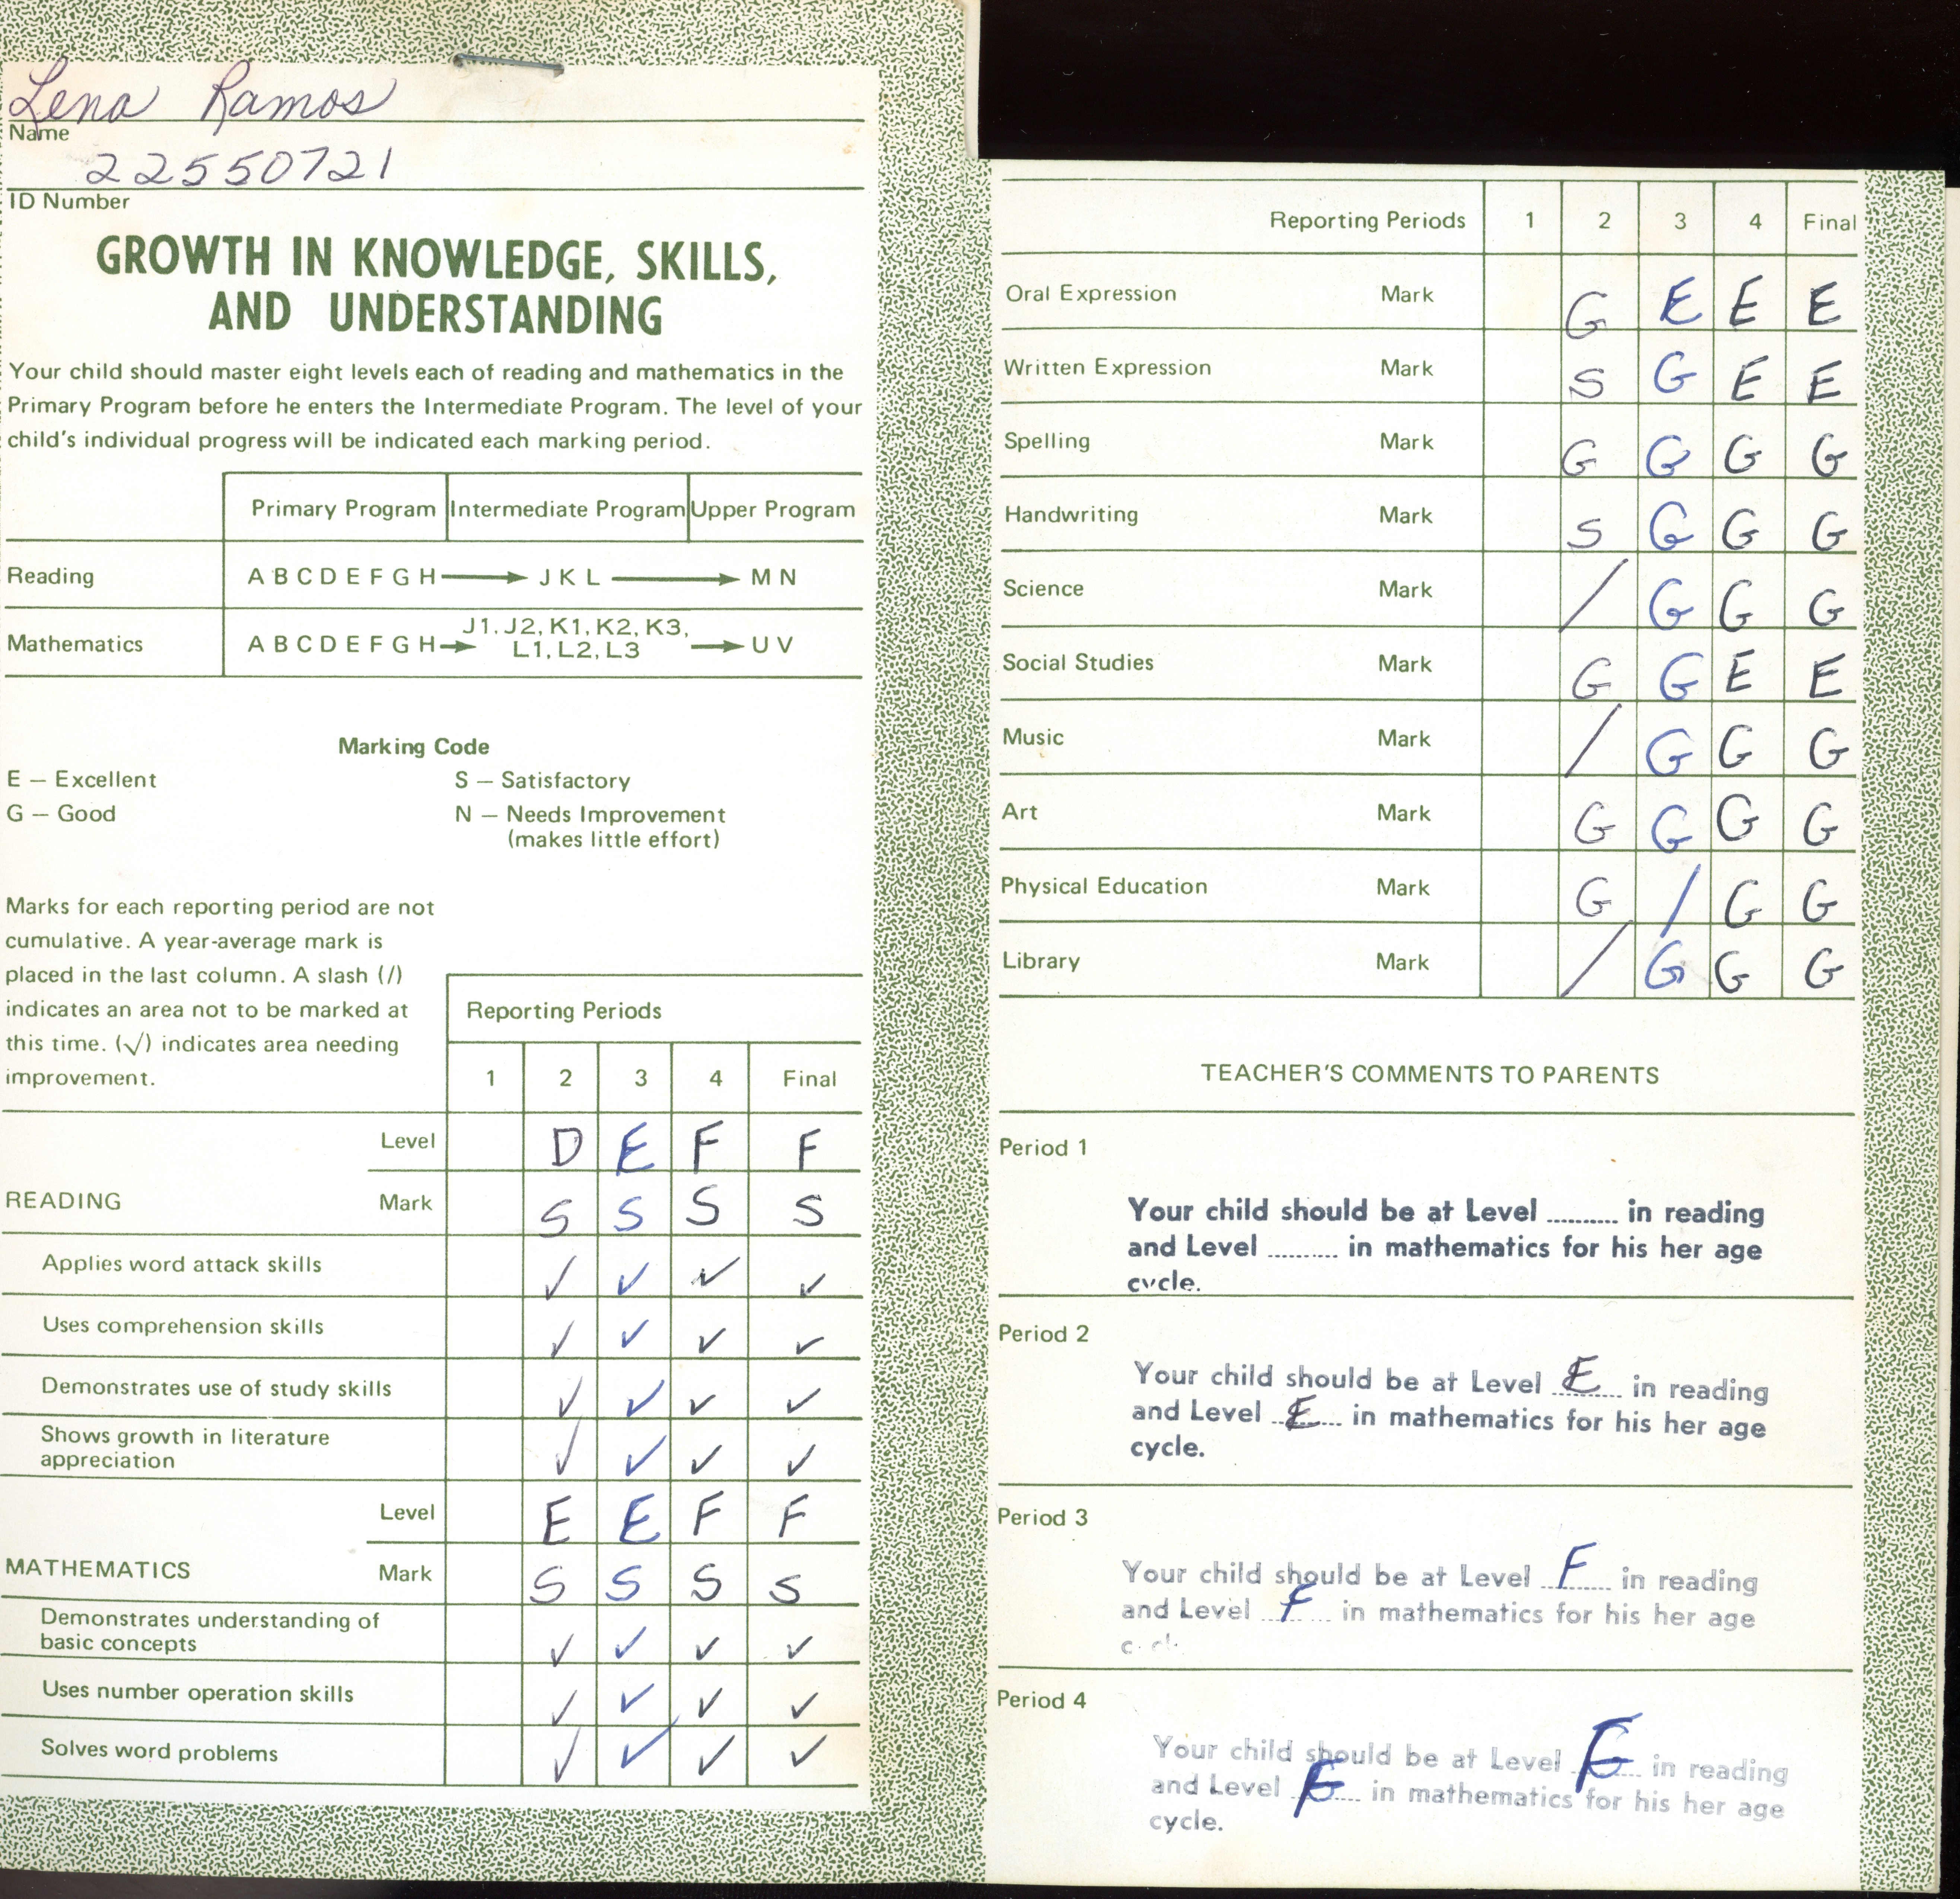 Lena Ramos
Name
22550721
ID Number
GROWTH IN KNOWLEDGE, SKILLS,
AND UNDERSTANDING
Your child should master eight levels each of reading and mathematics in the
Primary Program before he enters the Intermediate Program. The level of your
child's individual progress will be indicated each marking period.
Primary Program Intermediate Program Upper Program
Reading A B C D E F G H → J K L → M N
J1, J2, K1, K2, K3,
Mathematics A B C D E F G H → L1, L2, L3 → U V
Marking Code
E — Excellent S — Satisfactory
G — Good N — Needs Improvement
(makes little effort)
Marks for each reporting period are not
cumulative. A year-average mark is
placed in the last column. A slash (/)
indicates an area not to be marked at
this time. (√) indicates area needing
improvement.
Reporting Periods
1 2 3 4 Final
Level D E F F
READING Mark S S S S
Applies word attack skills ✓ ✓ ✓ ✓
Uses comprehension skills ✓ ✓ ✓ ✓
Demonstrates use of study skills ✓ ✓ ✓ ✓
Shows growth in literature
appreciation ✓ ✓ ✓ ✓
Level E E F F
MATHEMATICS Mark S S S S
Demonstrates understanding of
basic concepts ✓ ✓ ✓ ✓
Uses number operation skills ✓ ✓ ✓ ✓
Solves word problems ✓ ✓ ✓ ✓
Reporting Periods 1 2 3 4 Final
Oral Expression Mark G E E E
Written Expression Mark S G E E
Spelling Mark G G G G
Handwriting Mark S G G G
Science Mark / G G G
Social Studies Mark G G E E
Music Mark / G G G
Art Mark G G G G
Physical Education Mark G / G G
Library Mark / G G G
TEACHER'S COMMENTS TO PARENTS
Period 1
Your child should be at Level .......... in reading
and Level .......... in mathematics for his her age
cycle.
Period 2
Your child should be at Level E in reading
and Level E in mathematics for his her age
cycle.
Period 3
Your child should be at Level F in reading
and Level F in mathematics for his her age
Period 4
Your child should be at Level in reading
and Level in mathematics for his her age
cycle.